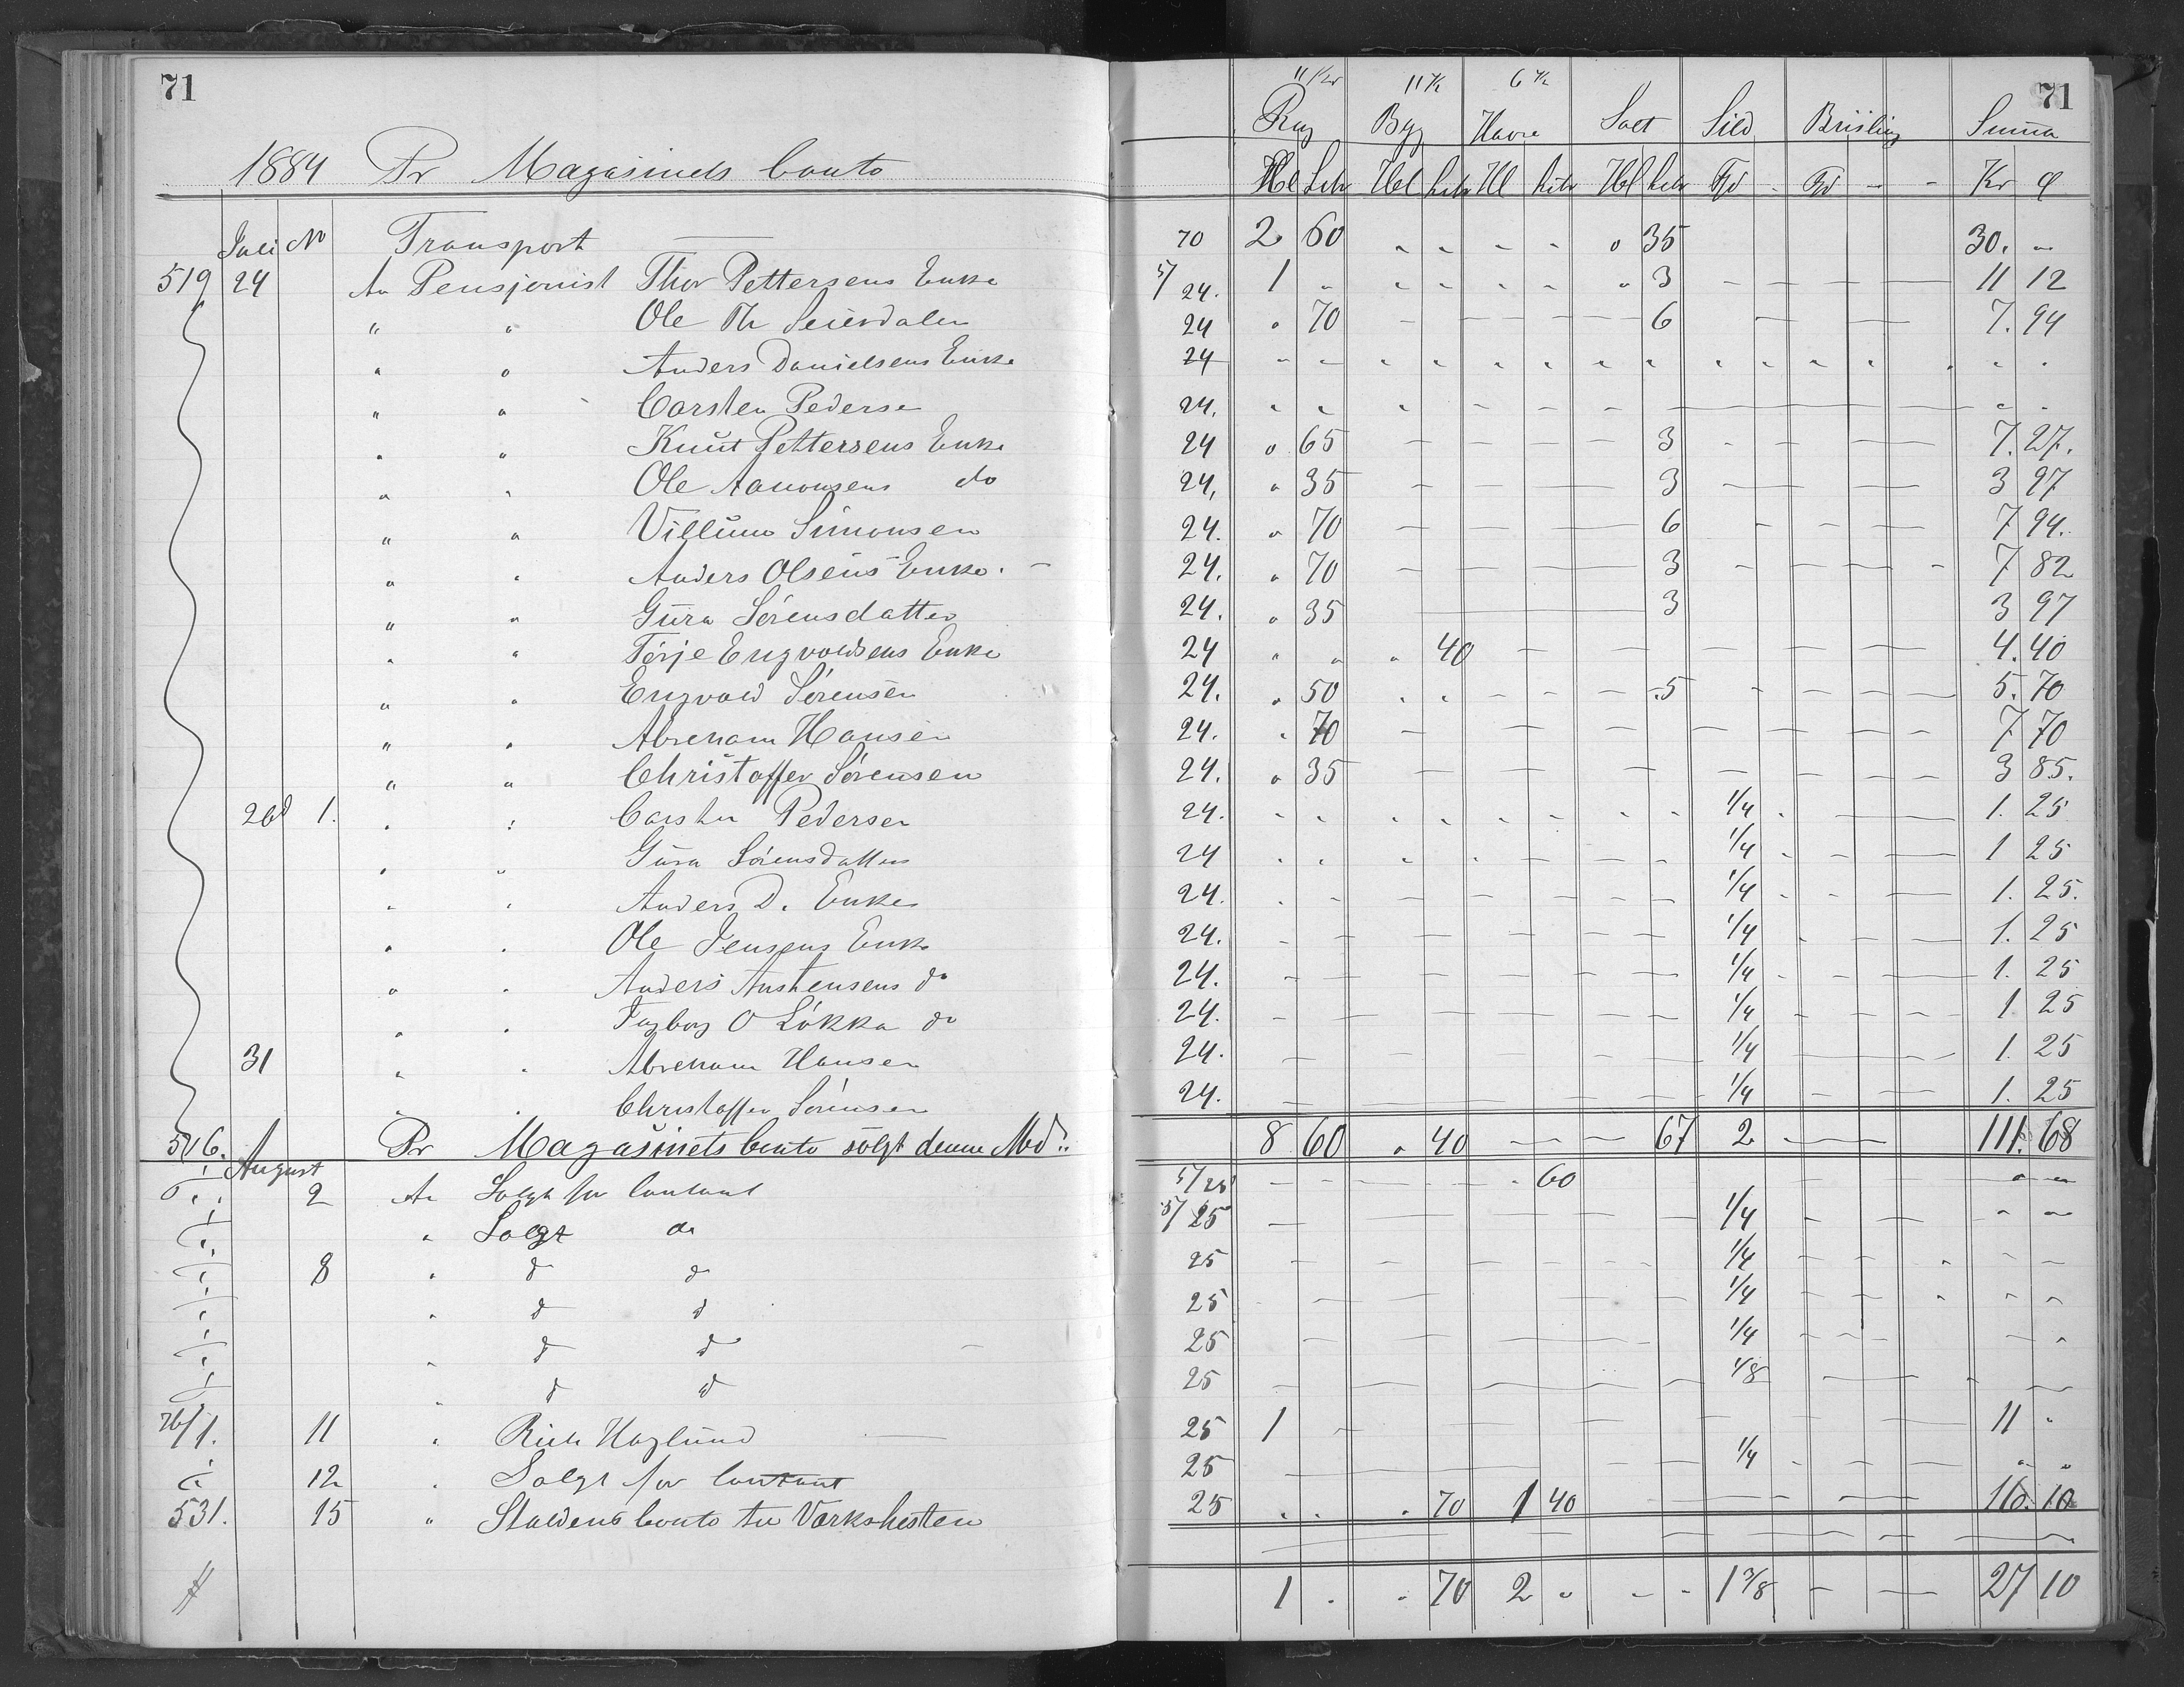 71 71
11 Kr 11 K 6 K
Rug Byg Havre Salt Sild Brisling Summa
1884 Pr Magasinets Conto Hl Litr Hl Litr Hl Litr Hl Litr Td - Td - - Kr Ø
Juli No Transport — 70 2 60 " " " " " 35 30. "
519 24 An Pensjonist Thor Pettersens Enke 5/24. 1 " " " " " " 3 - - - — 11 12
" " Ole Th Seierdalen 24 " 70 - - - - 6 — — 7. 94
" " Anders Danielsens Enke 24 " " " " " " " " " " " " " " "
" " Carsten Pederse 24. " " " - - - — " "
" " Knut Pettersens Enke 24 " 65 - - - 3 - - — 7. 27.
" " Ole Aanonsens do 24, " 35 - - - 3 — — — 3 97
" " Villum Simonsen 24. " 70 — — — 6 - - — 7 94.
" " Anders Olsens Enke. - 24. " 70 - - — 3 - - - - 7 82
" " Gura Sørensdatter 24. " 35 — 3 3 97
" " Terje Engvoldsens Enke 24 " " " 40 - - - - - - — 4. 40
" " Engvold Sørensen 24. " 50 " " - - - .5 - - - — 5. 70
" " Abreham Hansen 24. " 70 - - - - - - - 7 70
" " Christoffer Sørensen 24. " 35 - - - - - - - 3 85.
26d 1. " " Carsten Pedersen 24. " " " " " " " " 1/4 " — — 1. 25
" " Gura Sørensdatter 24 " " " " - - - 1/4 - - — 1 25
" " Anders D. Enke 24. " " - - - - - 1/4 - - — 1. 25.
" " Ole Jensens Enke 24. - - - - - - 1/4 - - — 1. 25
" " Anders Austensens do 24. - - - - - 1/4 - - — 1. 25
" " Ingborg O Løkka do 24. - - - - - 1/4 - - - - 1 25
31 " " Abreham Hansen 24. - - - 1/4 — - - 1. 25
" " Christoffer Sørensen 24. - - - - 1/4 - - 1. 25
506. Pr Magasinets Conto solgt denne Md: 8 60 " 40 — — 67 2 — — 111. 68
August
2 An Solgt for Contant 5/25 - - - - " 60 - - " "
" Solgt do 5/25 - — - - - 1/4 - - " "
8 " do do 25 - - - - - - 1/4 - - " - -
" do do 25 - - - - 1/4 - - " " "
" do do 25 - - - - 1/4 - - - - "
" do do 25 - - - - - 1/8 - - " -
26/1. 11 " Rich Haglund — 25 1 - - - - - - - 11 "
12 " Solgt for Contant 25 - - - - 1/4 - - - " "
531. 15 " Staldens Conto til Værkshesten 25 " " " 70 1 40 - - - 16. 10
1 " " 70 2 " - - 1 3/8 - — 27 10